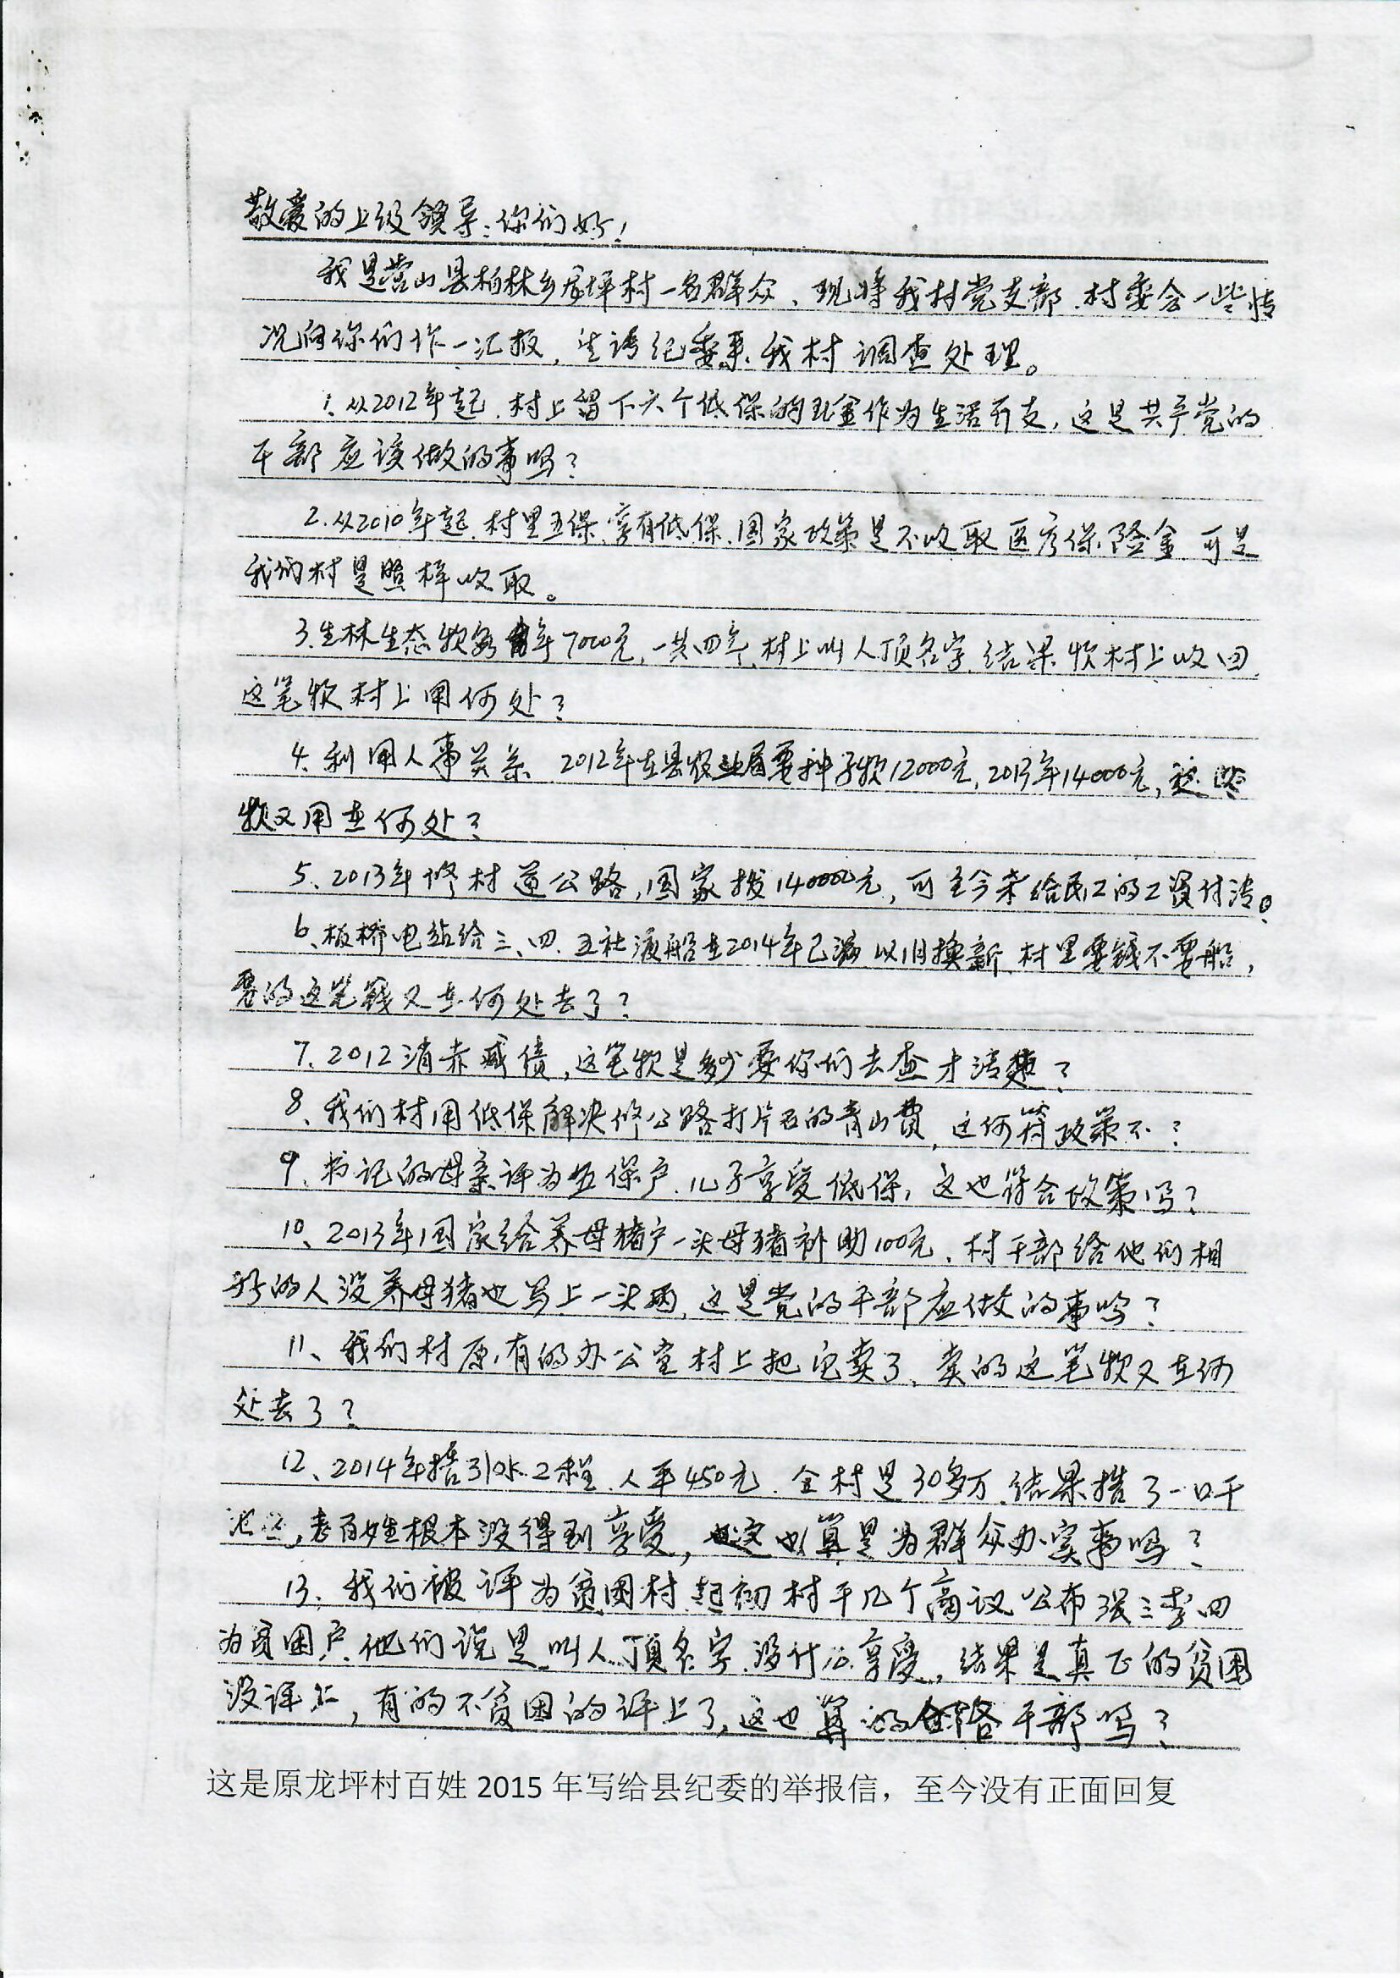 敬爱的上级领导：你们好！
我是营山县柏林乡龙坪村一名群众、现将我村党支部、村委会一些情
况向你们作一汇报，请纪委来我村调查处理。
1、从2012年起，村上留下六个低保的现金作为生活开支，这是共产党的
干部应该做的事吗？
2、从2010年起，村里五保、享有低保、国家政策是不收取医疗保险金 可是
我们村是照样收取。
3、生态款每年7000元，一共四年、村上叫人顶名字、结果款村上收回、
这笔款村上用何处？
4、利用人事关系 2012年在县农业局要种子款12000元，2013年14000元，这些
款又用在何处？
5、2013年修村道公路，国家拨140000元，可至今未给民工的工资付清。
6、板桥电站给三、四、五社渡船在2014年已以旧换新、村里要钱不要船，
要的这笔钱又在何处去了？
7、2012消赤减债，这笔款是多少要你们去查才清楚？
8、我们村用低保解决修公路打片石的青山费，这何符政策不？
9、书记的母亲评为五保户、儿子享受低保，这也符合政策吗？
10、2013年国家给养母猪户一头母猪补助100元、村干部给他们相
好的人没养母猪也写上一头两，这是党的干部应做的事吗？
11、我们村原有的办公室村上把它卖了、卖的这笔款又在何
处去了？
12、2014年搞引水工程、人平450元、全村是30多万、结果搞了一口干
，老百姓根本没得到享受，这也算是为群众办实事吗？
13、我们被评为贫困村、起初村干几个商议公布张三李四
为贫困户、他们说是叫人顶名字、没什么享受，结果是真正的贫困
没评上，有的不贫困的评上了、这也算的合格干部吗？
这是原龙坪村百姓 2015 年写给县纪委的举报信，至今没有正面回复